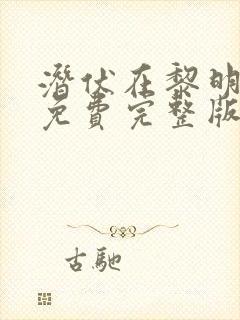 潛伏在黎明
免費完整版
古馳